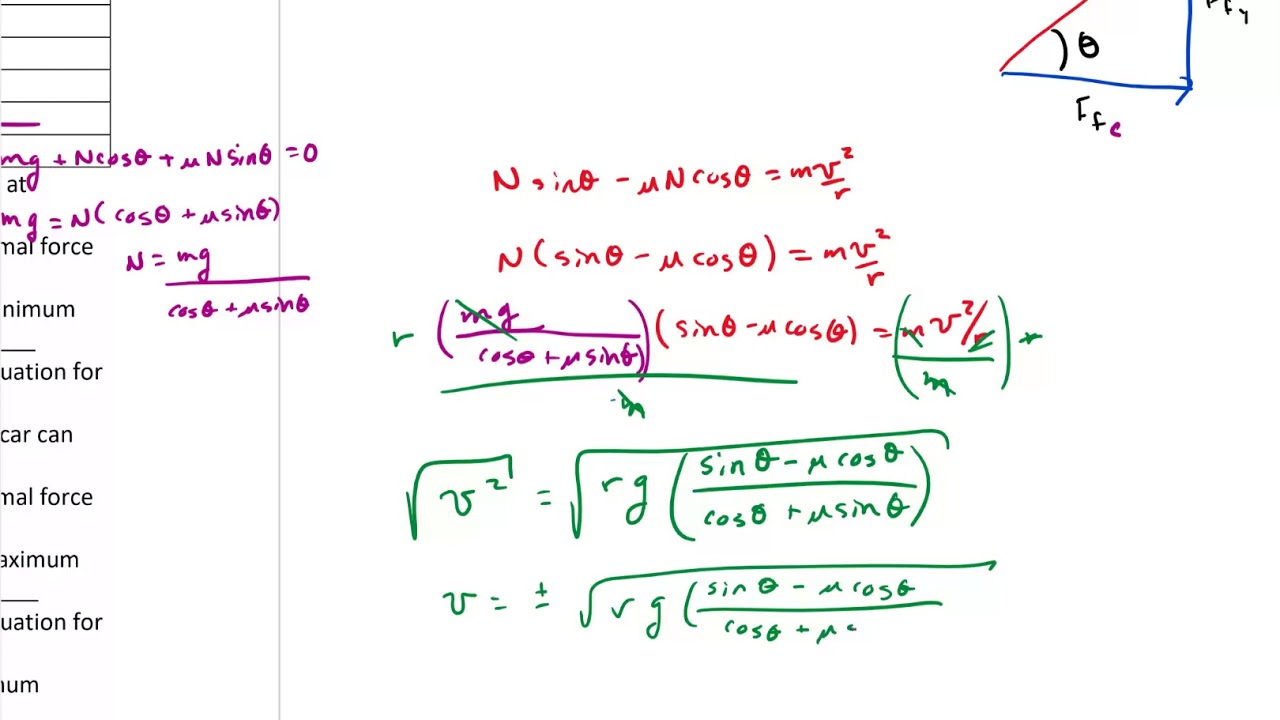 F_fy
θ
F_fc
mg + Ncosθ + μNsinθ = 0
at
mg = N(cosθ + μsinθ)
mal force
N = mg
cosθ + μsinθ
nimum
uation for
car can
mal force
aximum
uation for
num
N sinθ - μNcosθ = mv²/r
N(sinθ - μcosθ) = mv²/r
r (mg / cosθ + μsinθ)(sinθ - μcosθ) = (mv²/r) r
m m
√v² = √rg(sinθ - μcosθ / cosθ + μsinθ)
v = ± √rg(sinθ - μcosθ / cosθ + μ